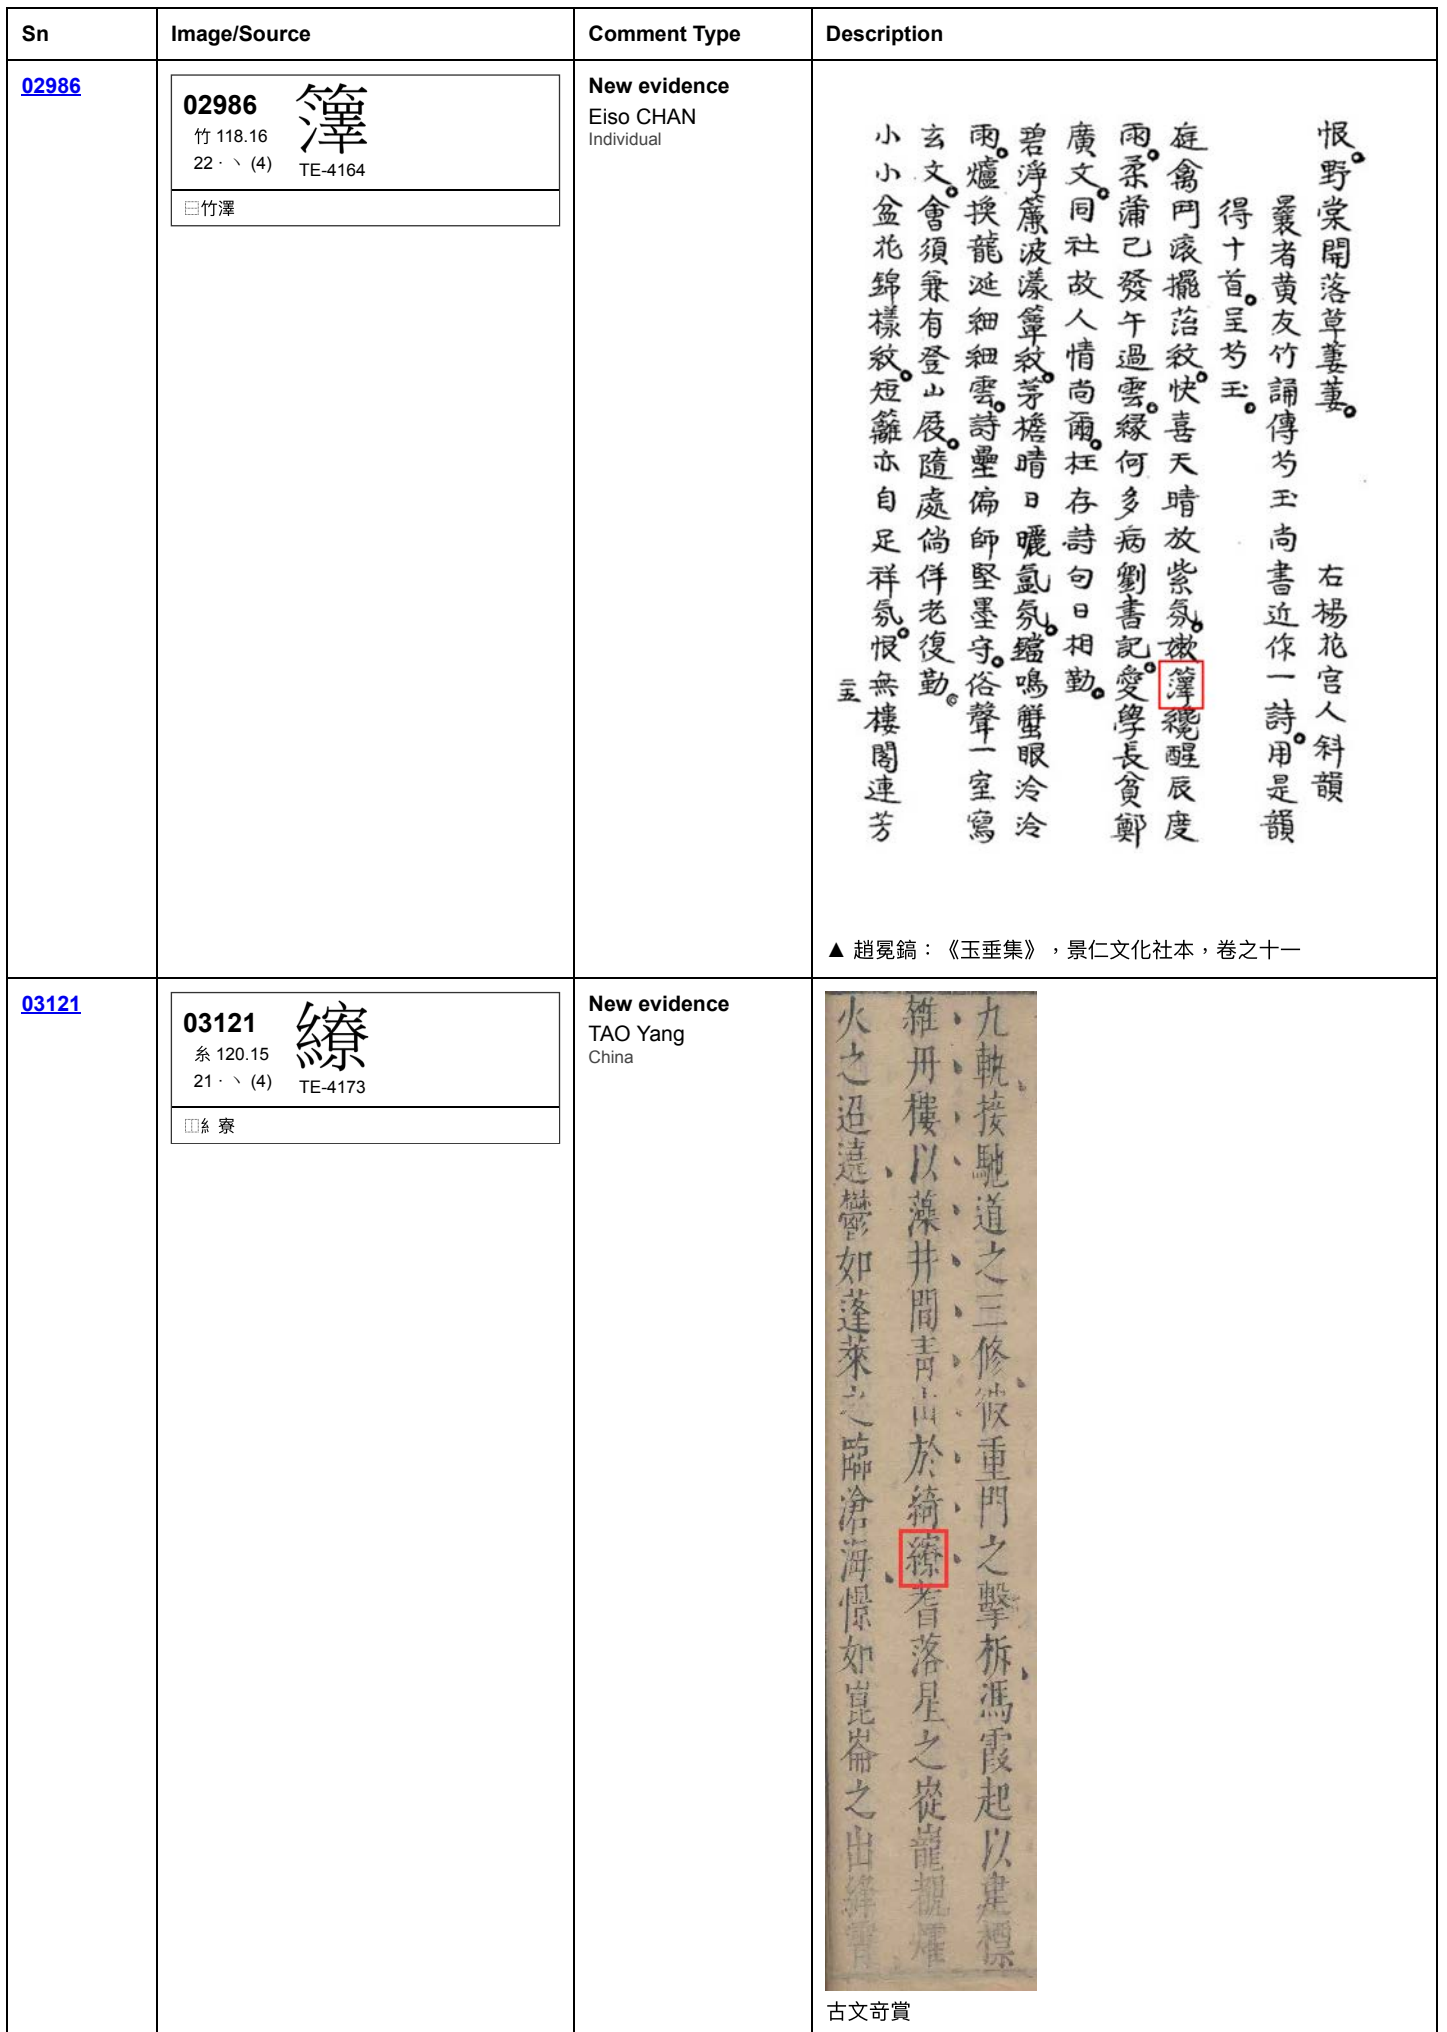 Sn Image/Source Comment Type Description
02986
02986
竹 118.16
22 · 丶 (4)
TE-4164
⿱竹澤
New evidence
Eiso CHAN
Individual
恨野棠開落草萋萋 右楊花宫人斜韻
曩者黄友竹誦傳芍玉尚書近作一詩用是韻
得十首呈芍玉
庭禽鬥滚擺萡紋快喜天晴放紫氛嫩𥴠纔醒辰度
雨柔蒲已發午過雲緣何多病劉書記愛學長貧鄭
廣文同社故人情尚爾枉存詩句日相勤
碧淨簾波漾簟紋茅檐晴日曬氤氛鐺鳴蟹眼泠泠
雨爐換龍涎細細雲詩壘偏師堅墨守俗聲一室寫
玄文會須兼有登山屐隨處倘佯老復勤
小小盆花錦樣紋短籬亦自足祥氛恨無樓閣連芳
二五
▲ 趙冕鎬：《玉垂集》，景仁文化社本，卷之十一
03121
03121
糸 120.15
21 · 丶 (4)
TE-4173
⿰糹寮
New evidence
TAO Yang
China
九軌接馳道之三修彼重門之擊柝馮霞起以建標
雜丹樓以藻井間青山於綺⿰糹寮者落星之嵸巃覩燿
火之迢遶鬱如蓬萊之臨滄海憬如崑崙之出絳霄
古文奇賞